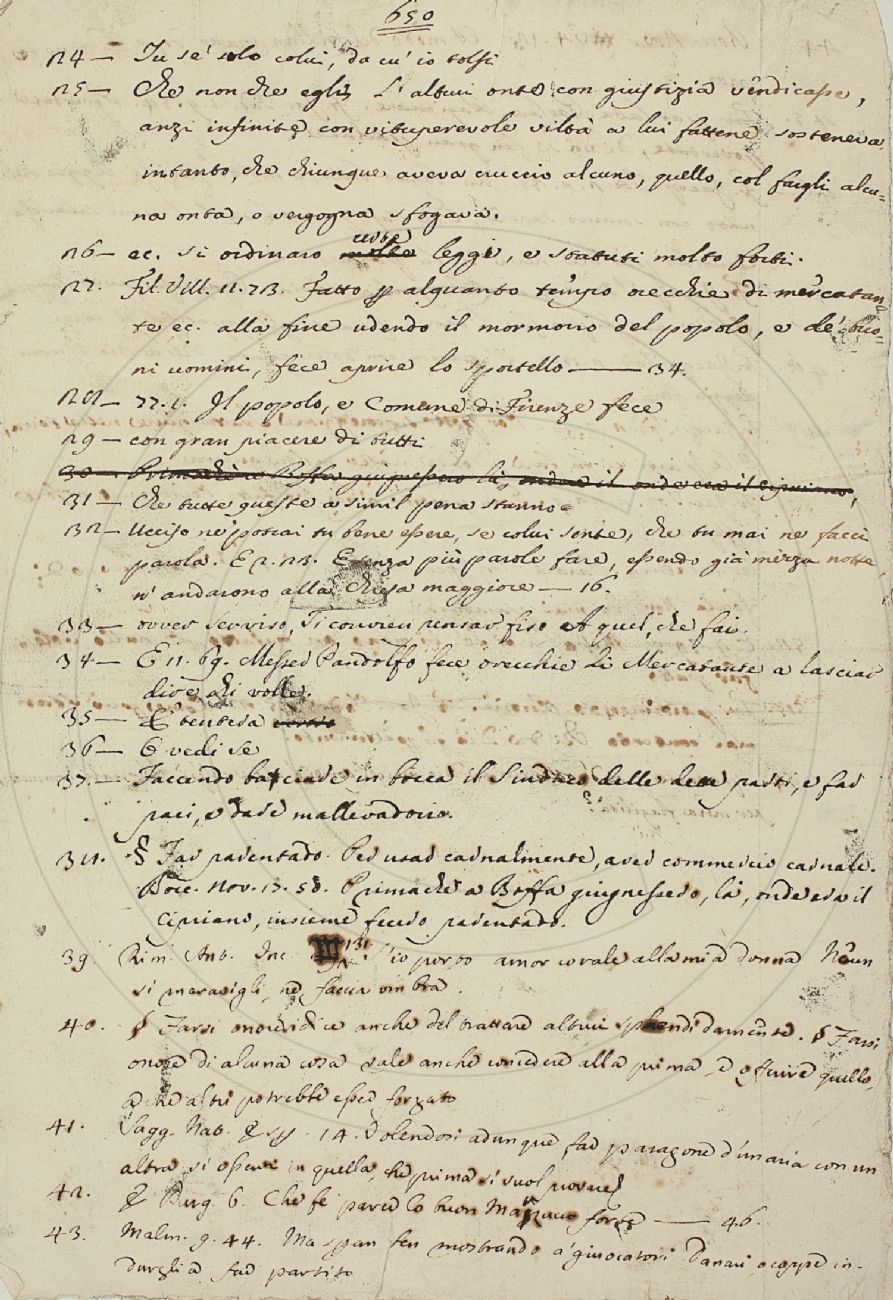 650
24 — Tu se' solo colui, da cu' io tolsi
25 — Che non che egli l'altrui onte con giustizia vendicasse,
anzi infinite con vituperevole viltà a lui fattene sosteneva
intanto, che chiunque aveva cruccio alcuno, quello, col fargli alcu-
na onta, o vergogna sfogava.
26 — ec. si ordinaro certe leggi, e statuti molto forti.
27. Fil. Vill. 11. 73. Fatto p alquanto tempo orecchie di mercatan
te ec. alla fine udendo il mormorio del popolo, e de' buo-
ni uomini, fece aprire lo sportello —— 34.
28 — 77. 1. Il popolo, e Comune di Firenze fece
29 — con gran piacere di tutti
30 — Primachè a Baffa giugnessero là,
31 — Che tutte queste a simil pena stanno
32 — Ucciso ne' potrai tu bene essere, se colui sente, che tu mai ne facci
parola. E 2. 23. E senza più parole fare, essendo già mezza notte
n' andarono alla chiesa maggiore — 16.
33 — ovver serviro, Ti convien pensar fiso A quel, che fai.
34 — E 11. 69. Messer Pandolfo fece orecchie di Mercatante a lasciar
dire chi volle.
35 — E tentera
36 — O vedi se
37. — Faccendo basciare in bocca il Sindaco delle dette parti, e far
paci, e dare mallevadorio.
38. § Far parentado. Per usar carnalmente, aver commercio carnale.
Bocc. Nov. 17. 58. Primachè a Baffa giugnessero, là, onde era il
cipriano, insieme fecero parentado.
39. Rim. Ant. Inc. 131. S'io porto amor corale alla mia donna Neun
si meravigli, nè faccia ombra.
40. § Farsi onore si dice anche del trattare altrui splendidamente. § Farsi
onore di alcuna cosa vale anche concedere alla prima, e offerire quello,
a che altri potrebbe esser forzato
41. Sagg. Nat. Esp. 14. Volendosi adunque far paragone d'un aria con un
altra si operi in quella, che prima si vuol provare
42. E Purg. 6. Che fe parer lo buon Marzucco forte —— 46.
43. Malm. 9. 44. Ma Span fen mostrando a' giuocatori Danari, o coppe in-
durgli a far partito